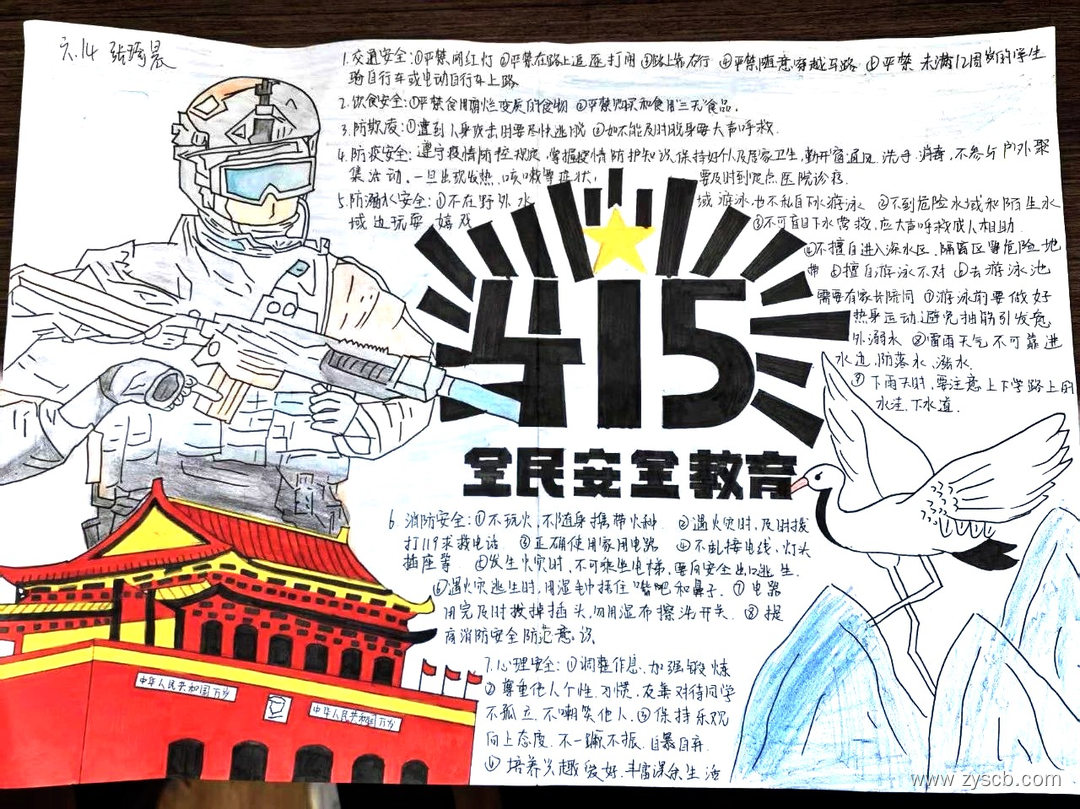 六.14 张琦晨
1.交通安全:①严禁闯红灯 ②严禁在路上追逐打闹 ③路上靠右行 ④严禁随意穿越马路 ⑤严禁未满12周岁的学生
骑自行车或电动自行车上路
2.饮食安全:①严禁食用腐烂变质的食物 ②严禁购买和食用三无食品.
3.防欺凌:①遭到人身攻击时要尽快逃脱 ②如不能及时脱身要大声呼救.
4.防疫安全:遵守疫情防控规定,掌握疫情防护知识,保持好个人及居家卫生,勤开窗通风,洗手,消毒,不参与户外聚
集活动,一旦出现发热,咳嗽等症状, 要及时到定点医院诊疗.
5.防溺水安全:①不在野外水 域游泳,也不私自下水游泳 ②不到危险水域和陌生水
域边玩耍、嬉戏 ③不可盲目下水营救,应大声呼救成人相助
④不擅自进入深水区、隔离区等危险地
带 ⑤擅自游泳不对 ⑥去游泳池
需要有家长陪同 ⑦游泳前要做好
热身运动避免抽筋引发意
外溺水 ⑧雷雨天气不可靠进
水边,防落水,涨水.
⑨下雨天时,要注意上下学路上的
水洼,下水道.
4 15
全民安全教育
6.消防安全:①不玩火,不随身携带火种. ②遇火灾时,及时拨
打119求救电话 ③正确使用家用电器 ④不乱接电线,灯头
插座等 ⑤发生火灾时,不可乘坐电梯,要向安全出口逃生.
⑥遇火灾逃生时,用湿毛巾捂住嘴吧和鼻子. ⑦电器
用完及时拔掉插头,勿用湿布擦洗开关. ⑧提
高消防安全防范意识
7.心理安全:①调整作息,加强锻炼
②尊重他人个性,习惯,友善对待同学
不孤立,不嘲笑他人.③保持乐观
向上态度.不一蹶不振,自暴自弃.
④培养兴趣爱好,丰富课余生活
中华人民共和国万岁
中华人民共和国万岁
www.zyscb.com